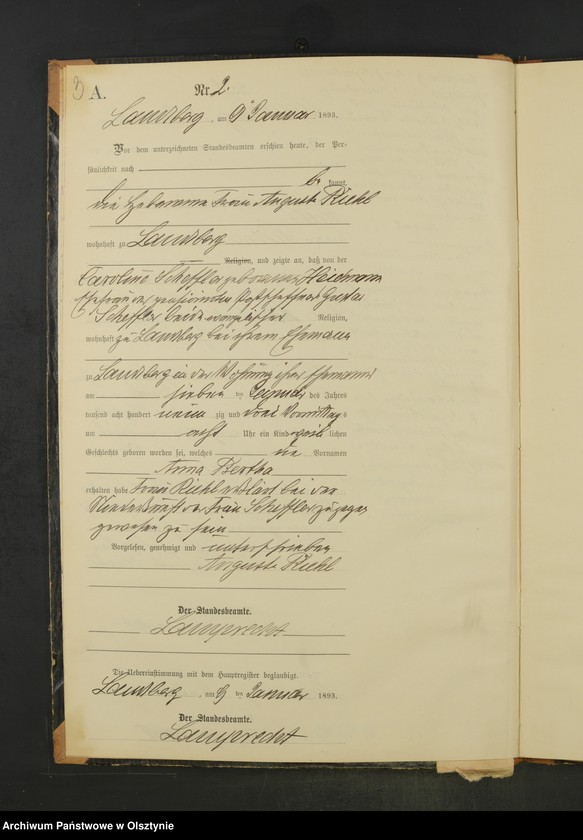 3
A.
Nr 2.
Landsberg, am 9 Januar 1893.
Vor dem unterzeichneten Standesbeamten erschien heute, der Per-
sönlichkeit nach
be kannt,
die Hebamme Frau Auguste Riehl
wohnhaft zu Landsberg
Religion, und zeigte an, daß von der
Caroline Scheffler geborenen Heidmann
Ehefrau des pensionirten Gustav
Scheffler beide evangelischer Religion,
wohnhaft zu Landsberg bei ihrem Ehemann
zu Landsberg in der Wohnung ihres Ehemannes
am sieben ten Januar des Jahres
tausend acht hundert neun zig und drei Vormittags
um acht Uhr ein Kind weib lichen
Geschlechts geboren worden sei, welches die Vornamen
Anna Bertha
erhalten habe Frau Riehl erklärt bei der
Niederkunft der Frau Scheffler zugegen
gewesen zu sein
Vorgelesen, genehmigt und unterschrieben
Auguste Riehl
Der Standesbeamte.
Lamprecht
Die Uebereinstimmung mit dem Hauptregister beglaubigt.
Landsberg, am 9 ten Januar 1893.
Der Standesbeamte.
Lamprecht
Archiwum Państwowe w Olsztynie